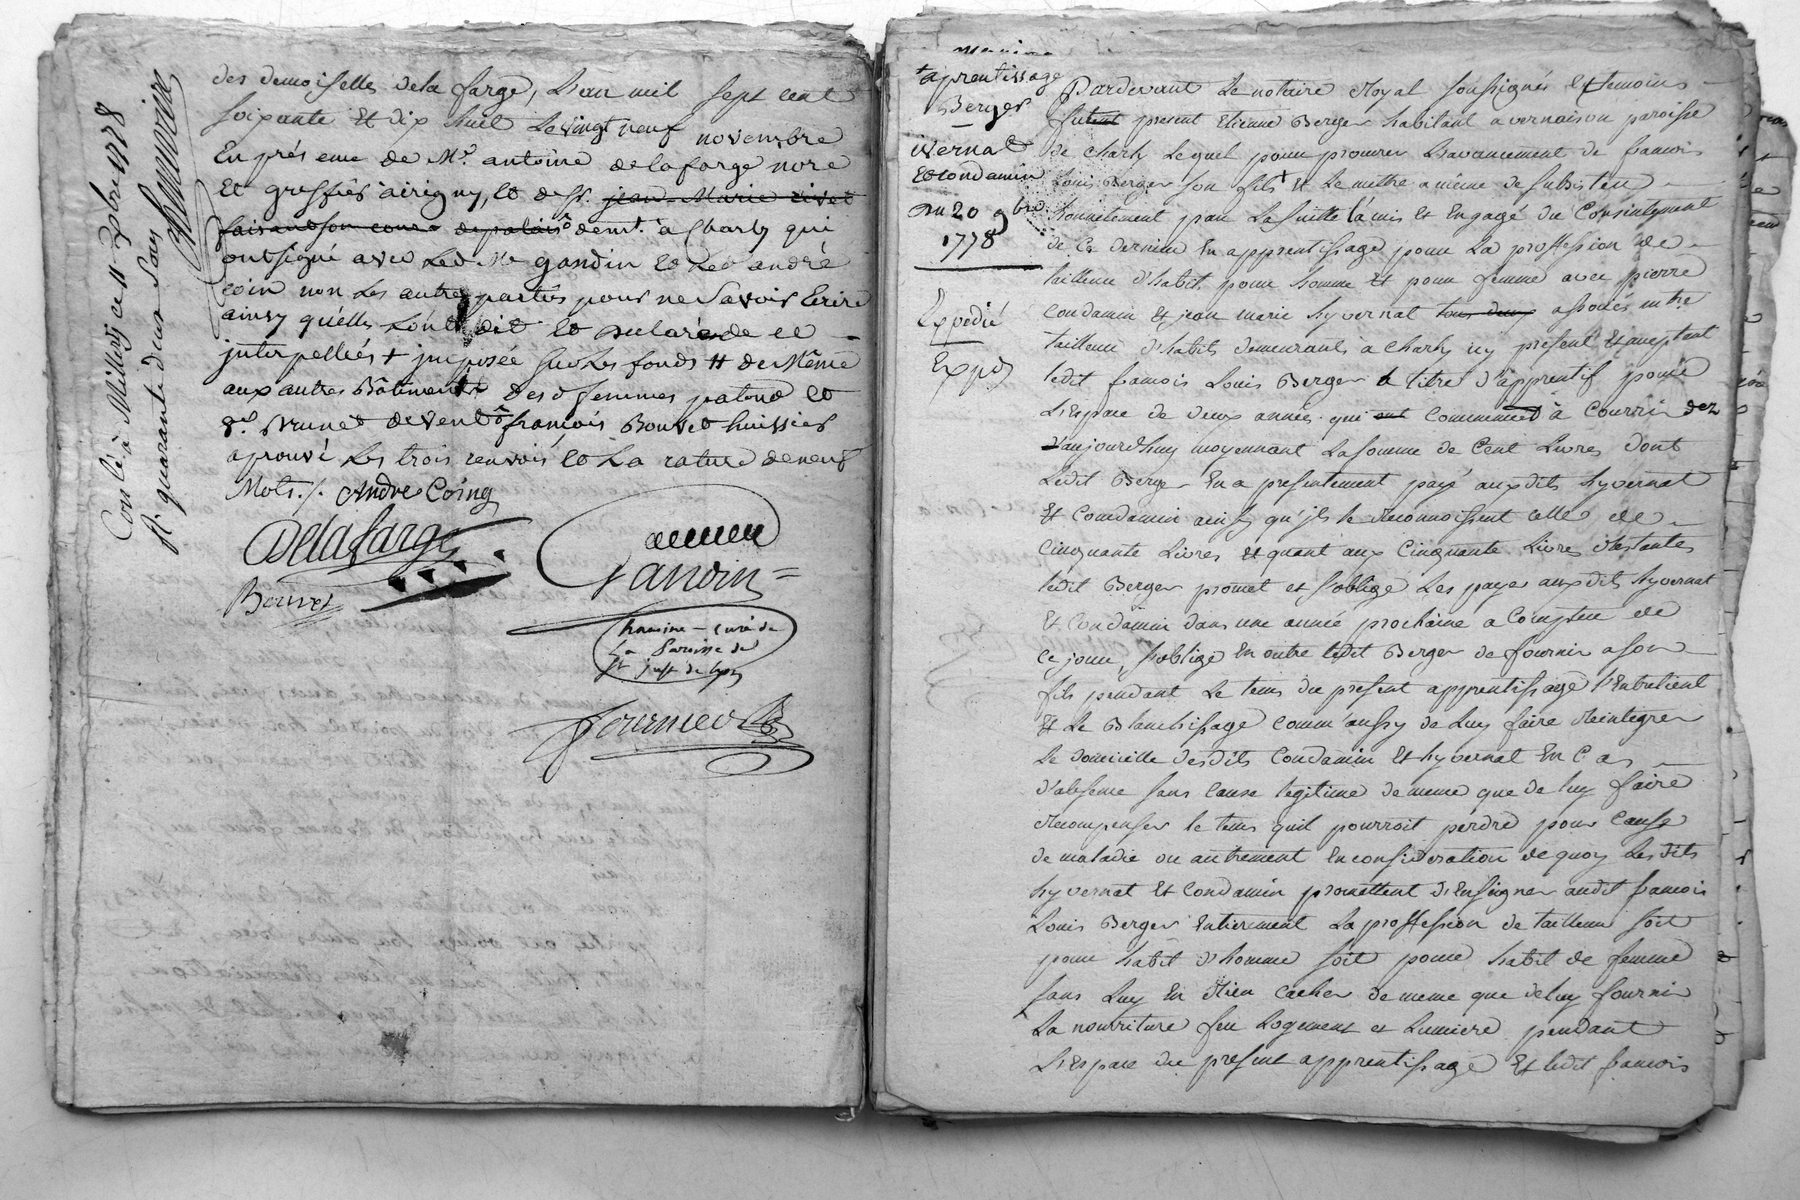 des demoiselles dela farge, L'an mil sept cent
soixante Et dix huit Le vingt neuf novembre
En présence de Mr. antoine delafarge nore
Et greffiés airigny, Et de Sr. jean Marie
faisant son cours de palais demt. à Charly qui
ont signé avec Led. Me gandin Et Led andré
coin non Les autres parties pour ne Savoir Ecrire
ainsy qu'elles L'ont dit Et déclaré de ce
jnterpellées + jmposée sur Les fonds # de Même
aux autres Bâtiments des d femmes patond Et
Sr. Brunet devent françois Bouvet huissier
aprouvé Les trois renvois Et La rature de neuf
Mots ./. André Coing
Delafarge
Gandin
Bouvet
curé de
La Paroisse de
St just de lyon
fournier
Conlé à Millery ce 11 Xbre 1778
R. quarante deux Sous
aprentissage
Berger
ivernat
Et Condamin
Du 20 9bre
1778
Expedié
Expdé
Pardevant Le notaire Royal soussignés Et temoins
fut présent Etienne Berger habitant a vernaison paroisse
de Charly Lequel pour procurer L'avancement de francois
Louis Berger son fils + Et Le mettre a même de subsister
honnetement par La suitte l'a mis Et Engagé du Consentement
de Ce dernier En apprentissage pour La proffession de
tailleur d'habit pour homme Et pour femme avec pierre
Condamin Et jean marie hyvernat tous deux associés entre
tailleur d'habits demeurants à Charly icy present Et acceptant
ledit francois Louis Berger à titre d'apprentif pour
L'Espace de deux années qui ont commencé à Courrir dez
d'aujourd'huy moyennant La somme de Cent Livres dont
Ledit Berger En a presentement payé auxdits hyvernat
Et Condamin ainsy qu'ils le reconnoissent celle de
Cinquante Livres Et quant aux Cinquante Livres restantes
ledit Berger promet et s'oblige Les payer auxdits hyvernat
Et Condamin dans une année prochaine a Compter de
Ce jour, s'oblige En outre ledit Berger de fournir a son
fils pendant Le tems du present apprentissage l'Entretient
Et Le Blanchissage comm'aussy de Luy faire reintegrer
Le domicille desdits Condamin Et hyvernat En Cas
d'absence sans cause legitime de meme que de luy faire
recompenser le tems qu'il pourroit perdre pour Cause
de maladie ou autrement En consideration de quoy Lesdits
hyvernat Et Condamin promettent d'Enseigner audit francois
Louis Berger Entierement La proffession de tailleur soit
pour habit d'homme soit pour habit de femme
sans Luy En Rien Cacher de meme que de luy fournir
La nourriture feu Logement et Lumiere pendant
L'Espace du present apprentissage Et ledit francois